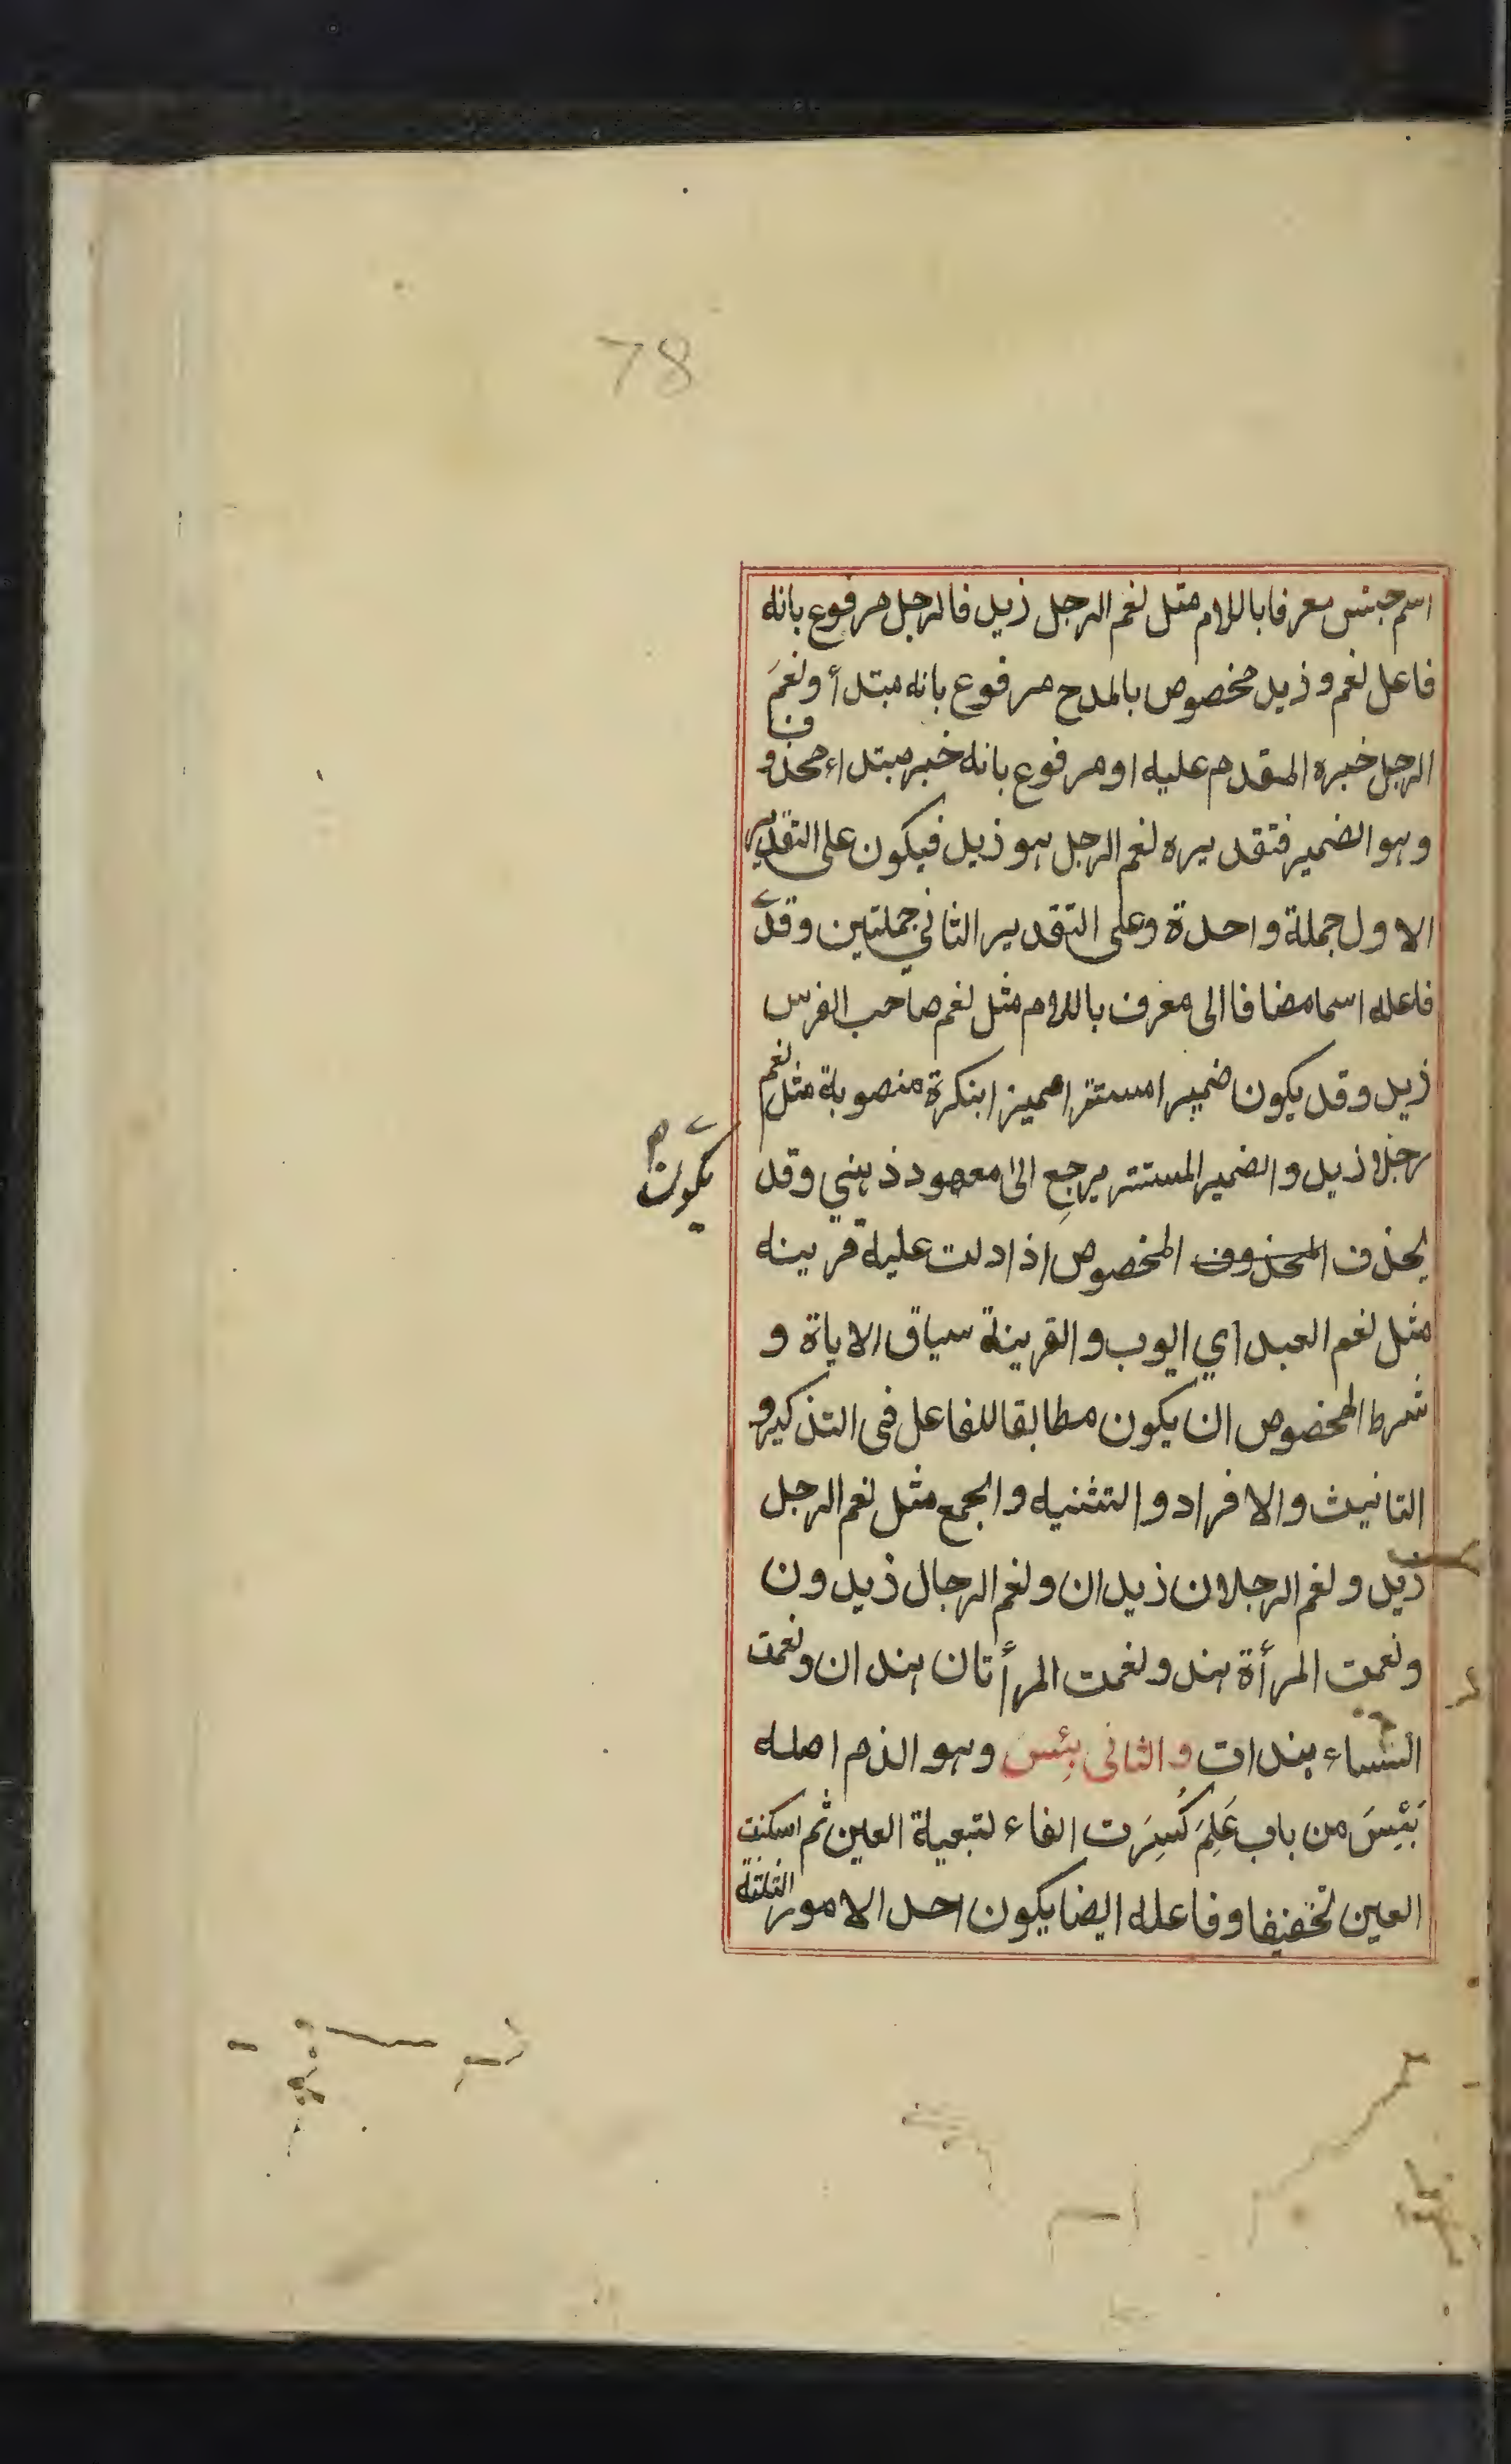 78
اسم جنس معرفا باللام مثل نعم الرجل زيد فالرجل مرفوع بانه
فاعل نعم و زيد مخصوص بالمدح مرفوع بانه مبتدأ ونعمَ
الرجل خبره المقدم عليه او مرفوع بانه خبر مبتداء محذوف
وهو الضمير فتقديره نعم الرجل هو زيد فيكون على التقدير
الاول جملة واحدة وعلى التقدير الثاني جملتين وقد
فاعله اسما مضافا الى معرف باللام مثل نعم صاحب الفرس
زيد وقد يكون ضميرا مستترا مميزا بنكرة منصوبة مثل نعم
يكون
رجلا زيد والضمير المستتر يرجع الى معهود ذهني وقد
يحذف المحذوف المخصوص اذا دلت عليه قرينه
مثل نعم العبد اي ايوب والقرينة سياق الاياة و
شرط المخصوص ان يكون مطابقا للفاعل فى التذكير و
التانيث والافراد والتثنيه والجمع مثل نعم الرجل
زيد ونعم الرجلان زيدان ونعم الرجال زيدون
ونعمت المرأة هند ونعمت المرأتان هندان ونعمت
النساء هندات والثانى بئِس وهو الذم اصله
بَئِسَ من باب عَلِمَ كُسِرَت الفاء لتبعية العين ثم اسكنت
العين تخفيفا وفاعله ايضا يكون احد الامور الثلثة